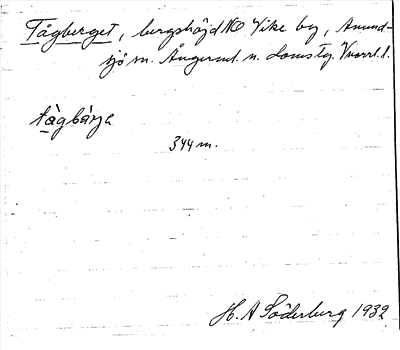 Tågberget, bergshöjd NO Vike by, Anund-
sjö sn. Ångerml. n. domstg. Vnorrl. l.
tågbärje
344 m.
H. A Söderburg 1932